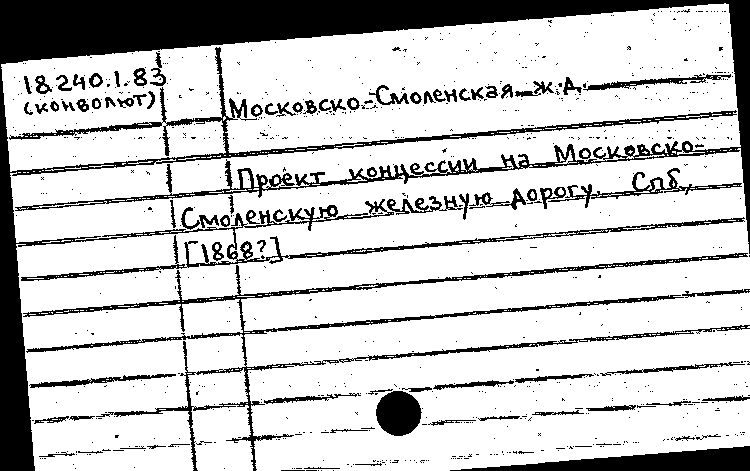 18.240.1.83
(конволют)
Московско-Смоленская ж.д.
Проект концессии на Московско-
Смоленскую железную дорогу. Спб,
[1868?]